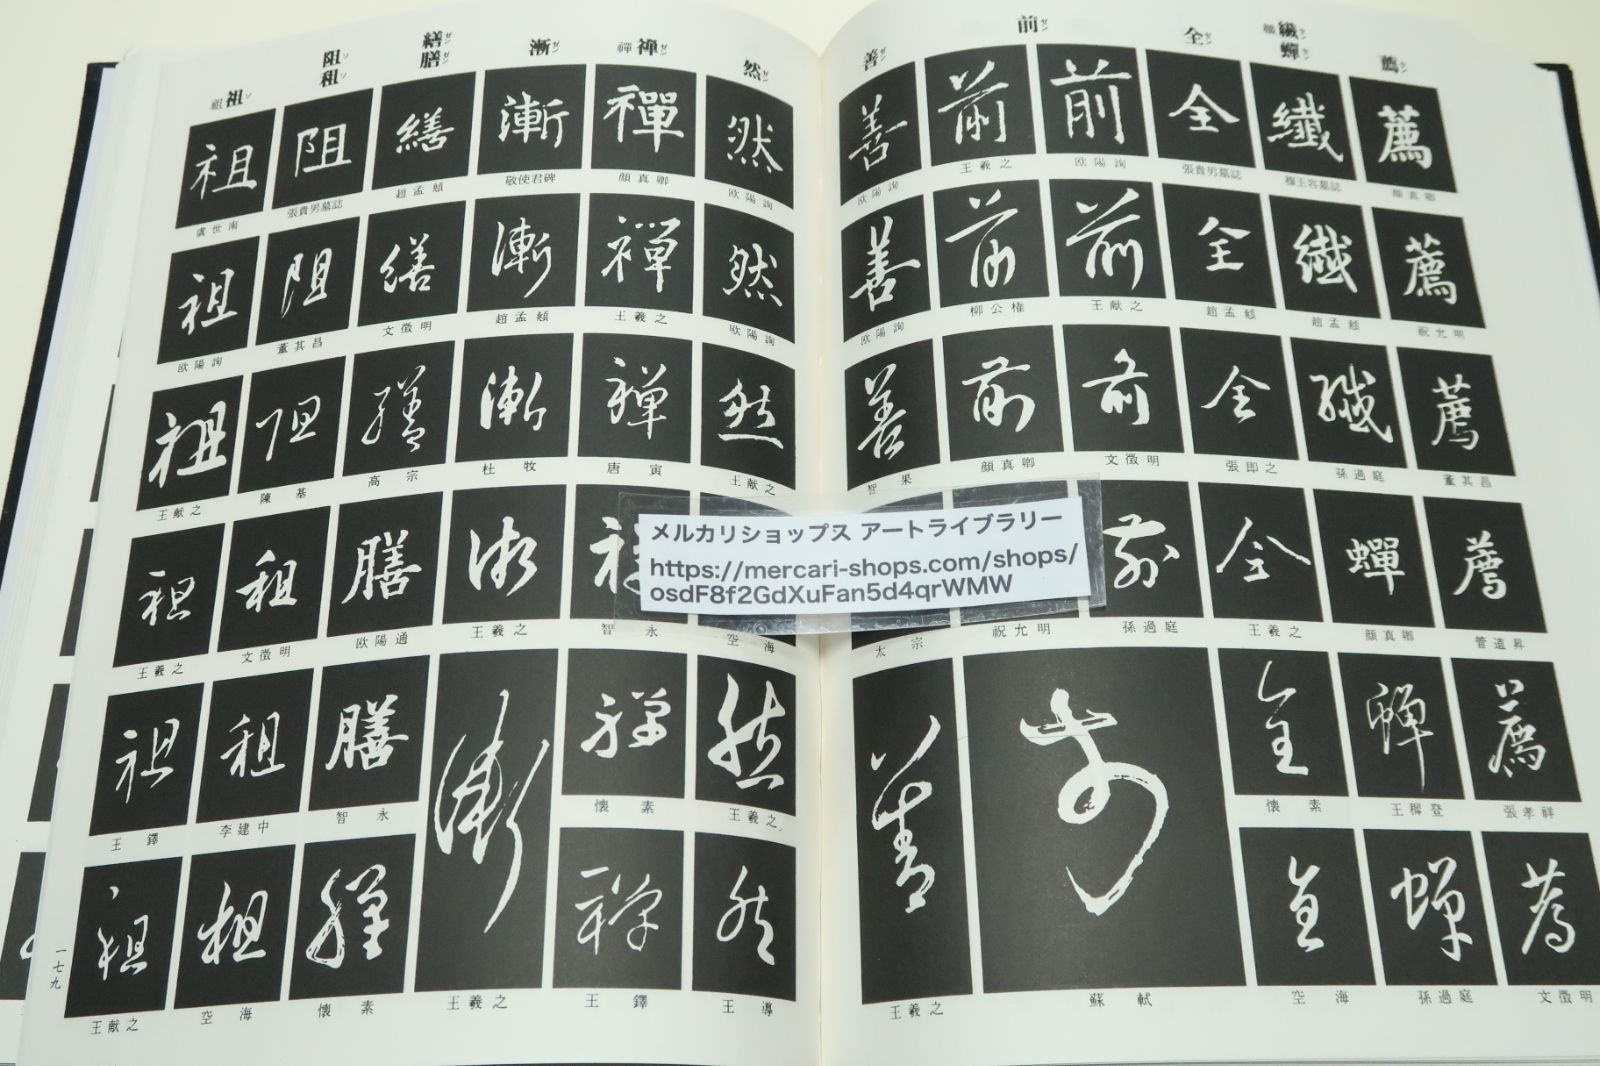 薦 セン
繊 セン
蟬 セン
全 ゼン
前 ゼン
善 ゼン
然 ゼン
禅 禪 ゼン
漸 ゼン
繕 ゼン
膳 ゼン
阻 ソ
租 ソ
祖 祖 ソ
薦 繊 全 前 前 善
顔真卿 穆玉容墓誌 張貴男墓誌 欧陽詢 王羲之 欧陽詢
薦 繊 全 前 前 善
祝允明 趙孟頫 趙孟頫 王献之 柳公権 欧陽詢
薦 繊 全 前 前 善
董其昌 孫過庭 張即之 文徴明 顔真卿 智果
薦 蟬 全 前
管道昇 顔真卿 王羲之 孫過庭 祝允明 太宗
薦 蟬 全 前 善
張孝祥 王穉登 懐素
薦 蟬 全
文徴明 孫過庭 空海 蘇軾 王羲之
然 禪 漸 繕 阻 祖
欧陽詢 顔真卿 敬使君碑 趙孟頫 張貴男墓誌 虞世南
然 禪 漸 繕 阻 祖
欧陽詢 王羲之 趙孟頫 文徴明 董其昌 欧陽詢
然 禪 漸 繕 阻 祖
王献之 唐寅 杜牧 高宗 陳基 王献之
漸 膳 租 祖
空海 智永 王羲之 欧陽通 文徴明 王羲之
然 禪 漸 膳 租 祖
王羲之 懐素 智永 李建中 王鐸
然 禪 膳 租 祖
王導 王鐸 王羲之 懐素 空海 王献之
一七九
メルカリショップス アートライブラリー
https://mercari-shops.com/shops/
osdF8f2GdXuFan5d4qrWMW